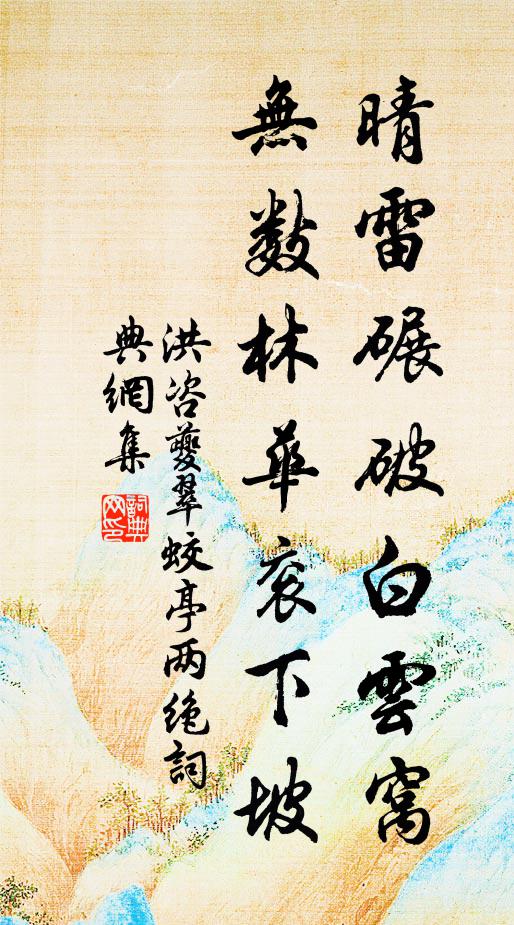 晴雷碾破白雲窩
無數林華衮下坡
洪咨夔翠蛟亭两絶詞
典網集
詞典
网印